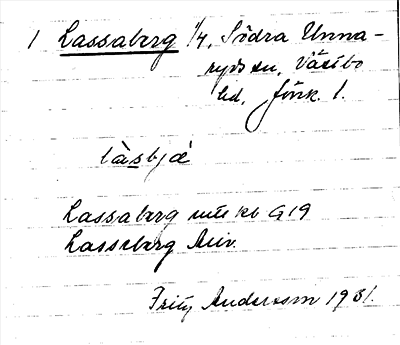 1 Lassaberg 1/4, Södra Unna-
ryds sn, Västbo
hd, Jönk. l.
làsbjæ
Lassaberg mtl kb G19
Lasseberg
Fritz Andersson 1931.